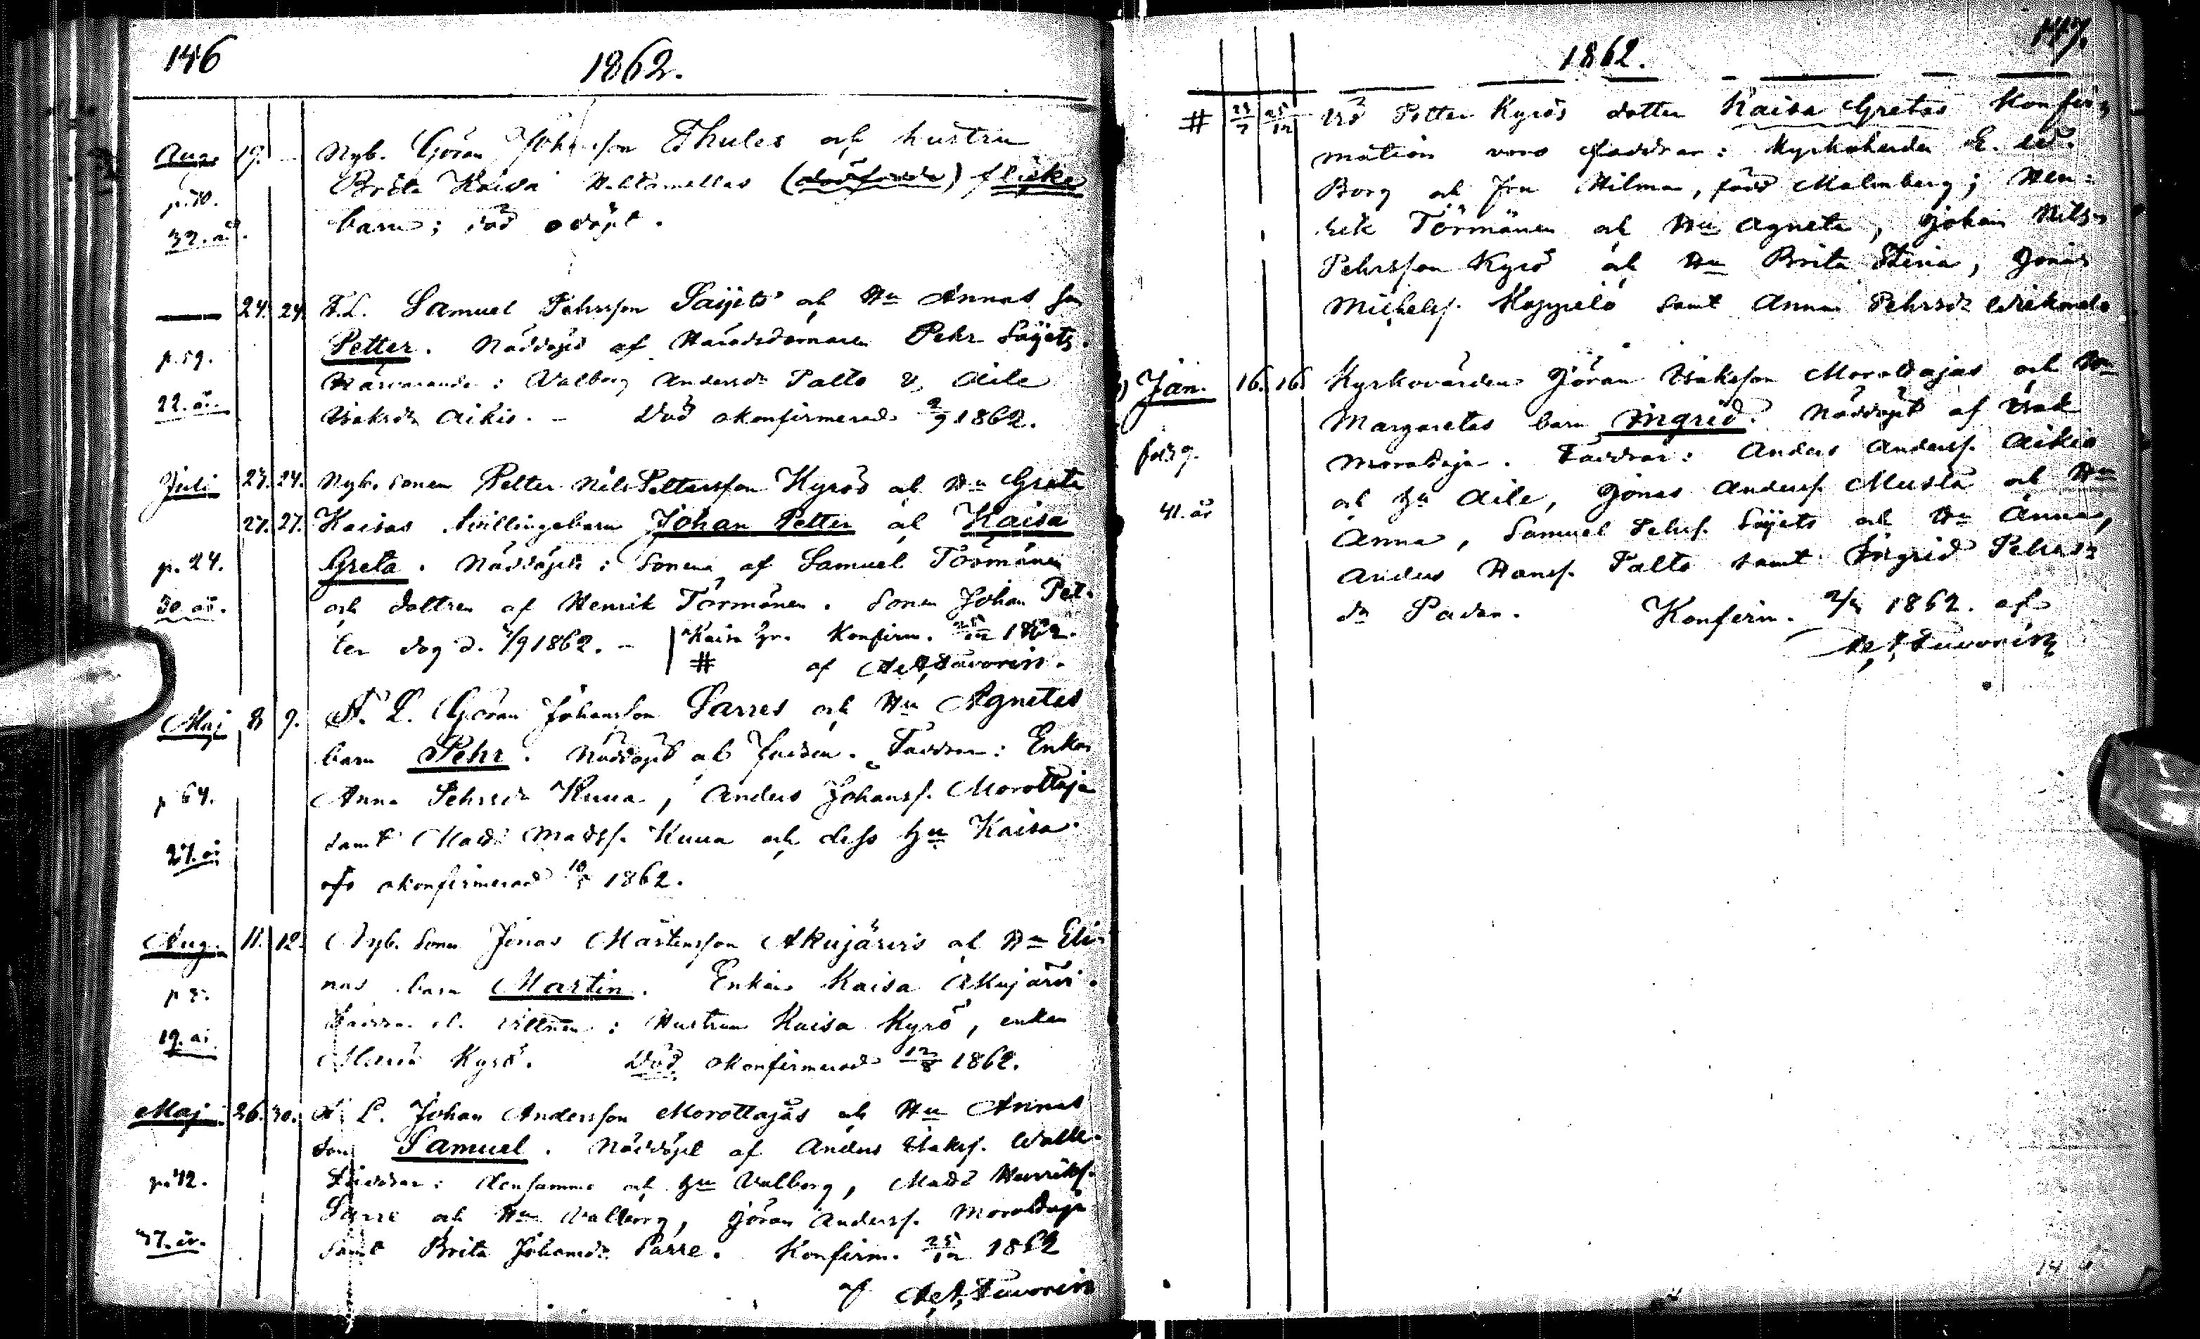 146
1862.
Aug. 19. Nyb. Göran Johansson Thules och hustru
p. 70. Brita Kaisa (dödfödde) flicke
32. år. barn; död odöpt.
24. 24. F.L. Samuel Pehrsson Sajets och Hu Annas son
p. 59. Petter. Nöddöpt af Häradsdomaren Pehr Sajets.
Närvarande: Valborg Andersdr Palto o, Aile
22. år. Isaksdr Aikio. - Död okonfirmerad 2/9 1862.
Juli 23. 24. Nyb. sonen Petter Nils Pettersson Kyrös och Hu Greta
27. 27. Kaisas tvillingebarn Johan Petter och Kaisa
p. 24. Greta. Nöddöpte: Sonen af Samuel Törmänen
30. år. och dottren af Henrik Törmänen. Sonen Johan Pet-
ter dog d. /9 1862. - Kaisa Gr. Konfirm. 25/12 1862.
# af
Maj 8 9. F. L. Göran Johansson Sarres och Hu Agnetas
barn Pehr. Nöddöpt af fadren. Faddrar: Enkan
p 64. Anna Pehrsdr Kuua, Anders Johanss. Morottaja
27. år samt Mads Madss. Kuua och dess hu Kaisa.
okonfirmerad 10/5 1862.
Aug. 11. 12. Nyb. sonen Jonas Mårtensson Akujärvis och Hu Eli-
p 5. nas barn Martin. Enkan Kaisa Akujärvi.
19. år. Faddrar o. vittnen: Hustrun Kaisa Kyrö, enkan
Maria Kyrö. Död okonfirmerad 12/8 1862.
Maj. 26. 30. F. L. Johan Andersson Morottajas och Hu Annas
son Samuel. Nöddöpt af Anders Isakss. Walle.
p. 42. Faddrar: densamme och hu Valborg, Mads Henrikss.
Sarre och Hu Valborg, Göran Anderss. Morottaja
37. år. samt Brita Johansdr Sarre. Konfirm. 25/12 1862
af
147.
1862.
# 23/7 25/12 Vid Petter Kyrös dotter Kaisa Gretas Konfir-
mation voro faddrar: Kyrkoherden E. W.
Borg och Fru Hilma, född Malmberg; Hen-
rik Törmänen och Hu Agneta, Johan Nils
Pehrsson Kyrö och Hu Brita Stina, Jonas
Michelss. Koppelo samt Anna Pehrsdr
Jan. 16. 16. Kyrkovärden Göran Isaksson Morottajas och Hu
Margaretas barn Ingrid. Nöddöpt af Isak
fol 39. Morottaja. Faddrar: Anders Anderss. Aikio
41. år och hu Aile, Jonas Anderss. Musta och Hu
Anna, Samuel Pehrs. Sajets och Hu Anna,
Anders Hanss. Palto samt Ingrid Pehrs-
dr Padar. Konfirm. 1862. af